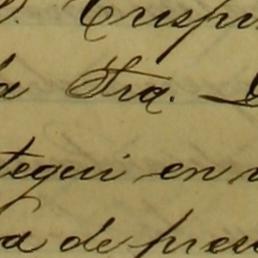 D. Crispi
a Sra.
tegui en
a de pres